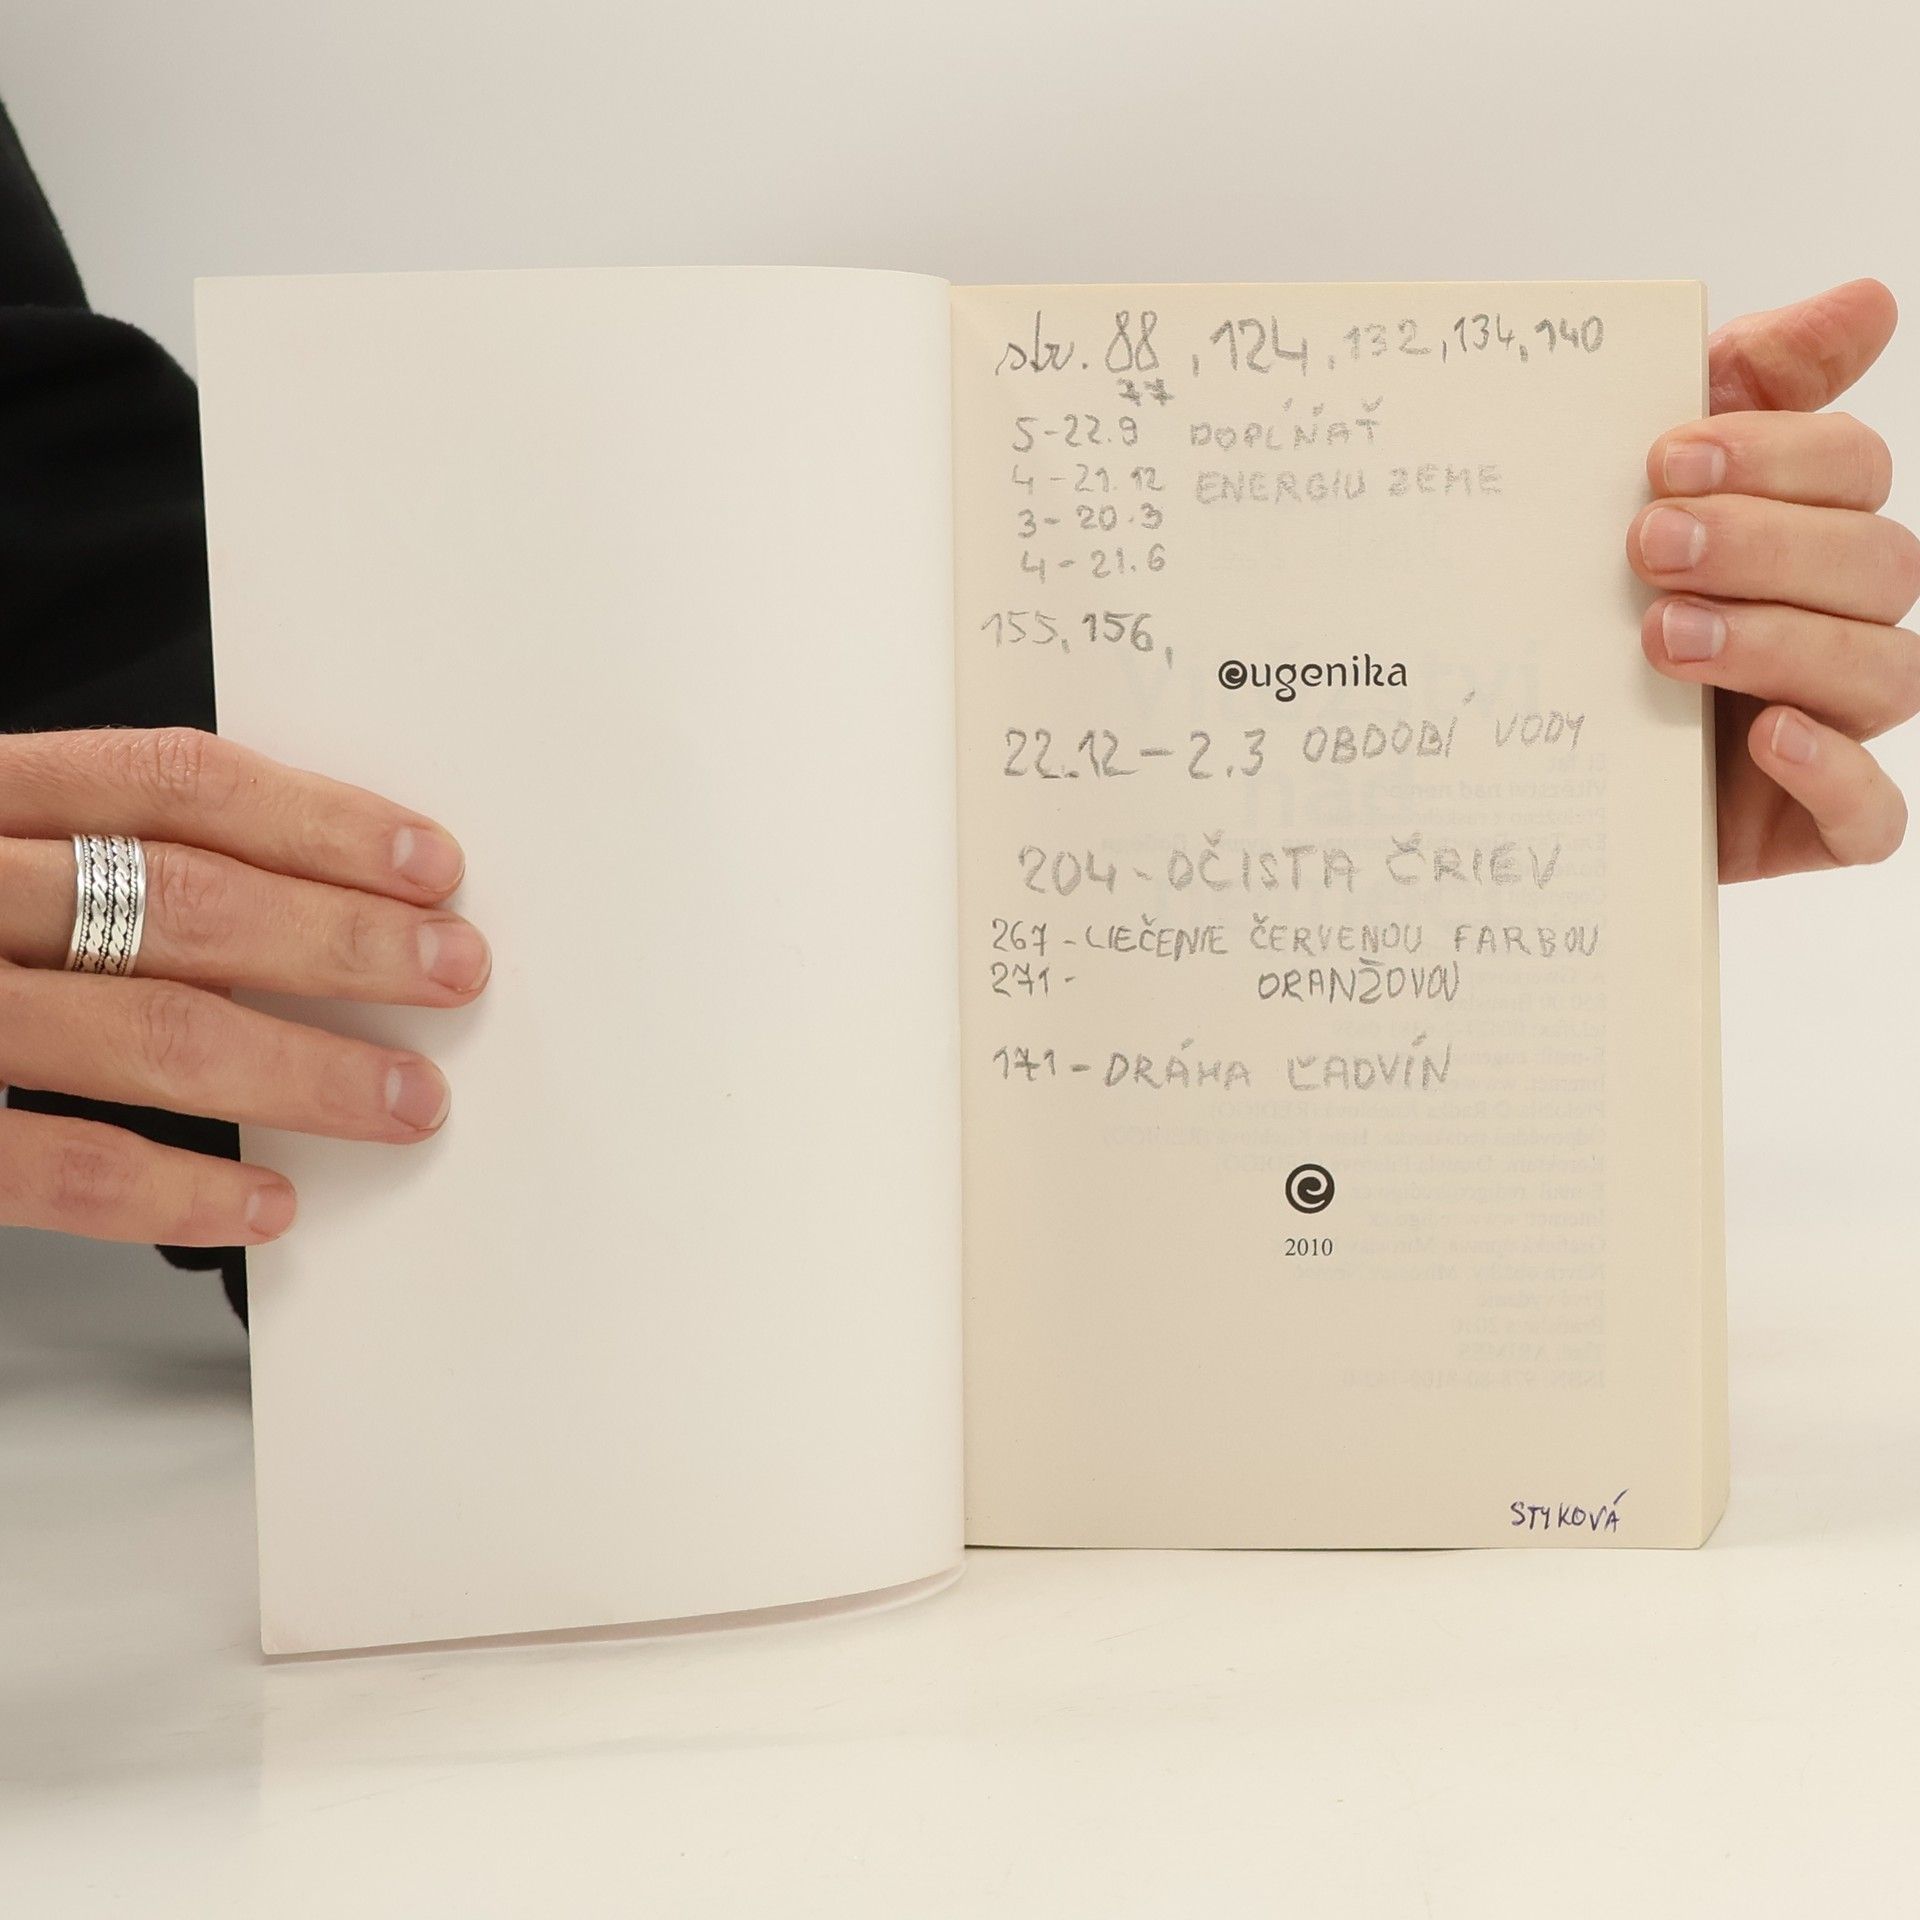 str. 88, 124, 132, 134, 140
77
5-22.9 DOPĹŇAŤ
4-21.12 ENERGIU ZEME
3-20.3
4-21.6
155, 156,
eugenika
22.12-2.3 OBDOBÍ VODY
204-OČISTA ČRIEV
267-LIEČENIE ČERVENOU FARBOU
271- ORANŽOVOU
171-DRÁHA ĽADVÍN
2010
STYKOVÁ